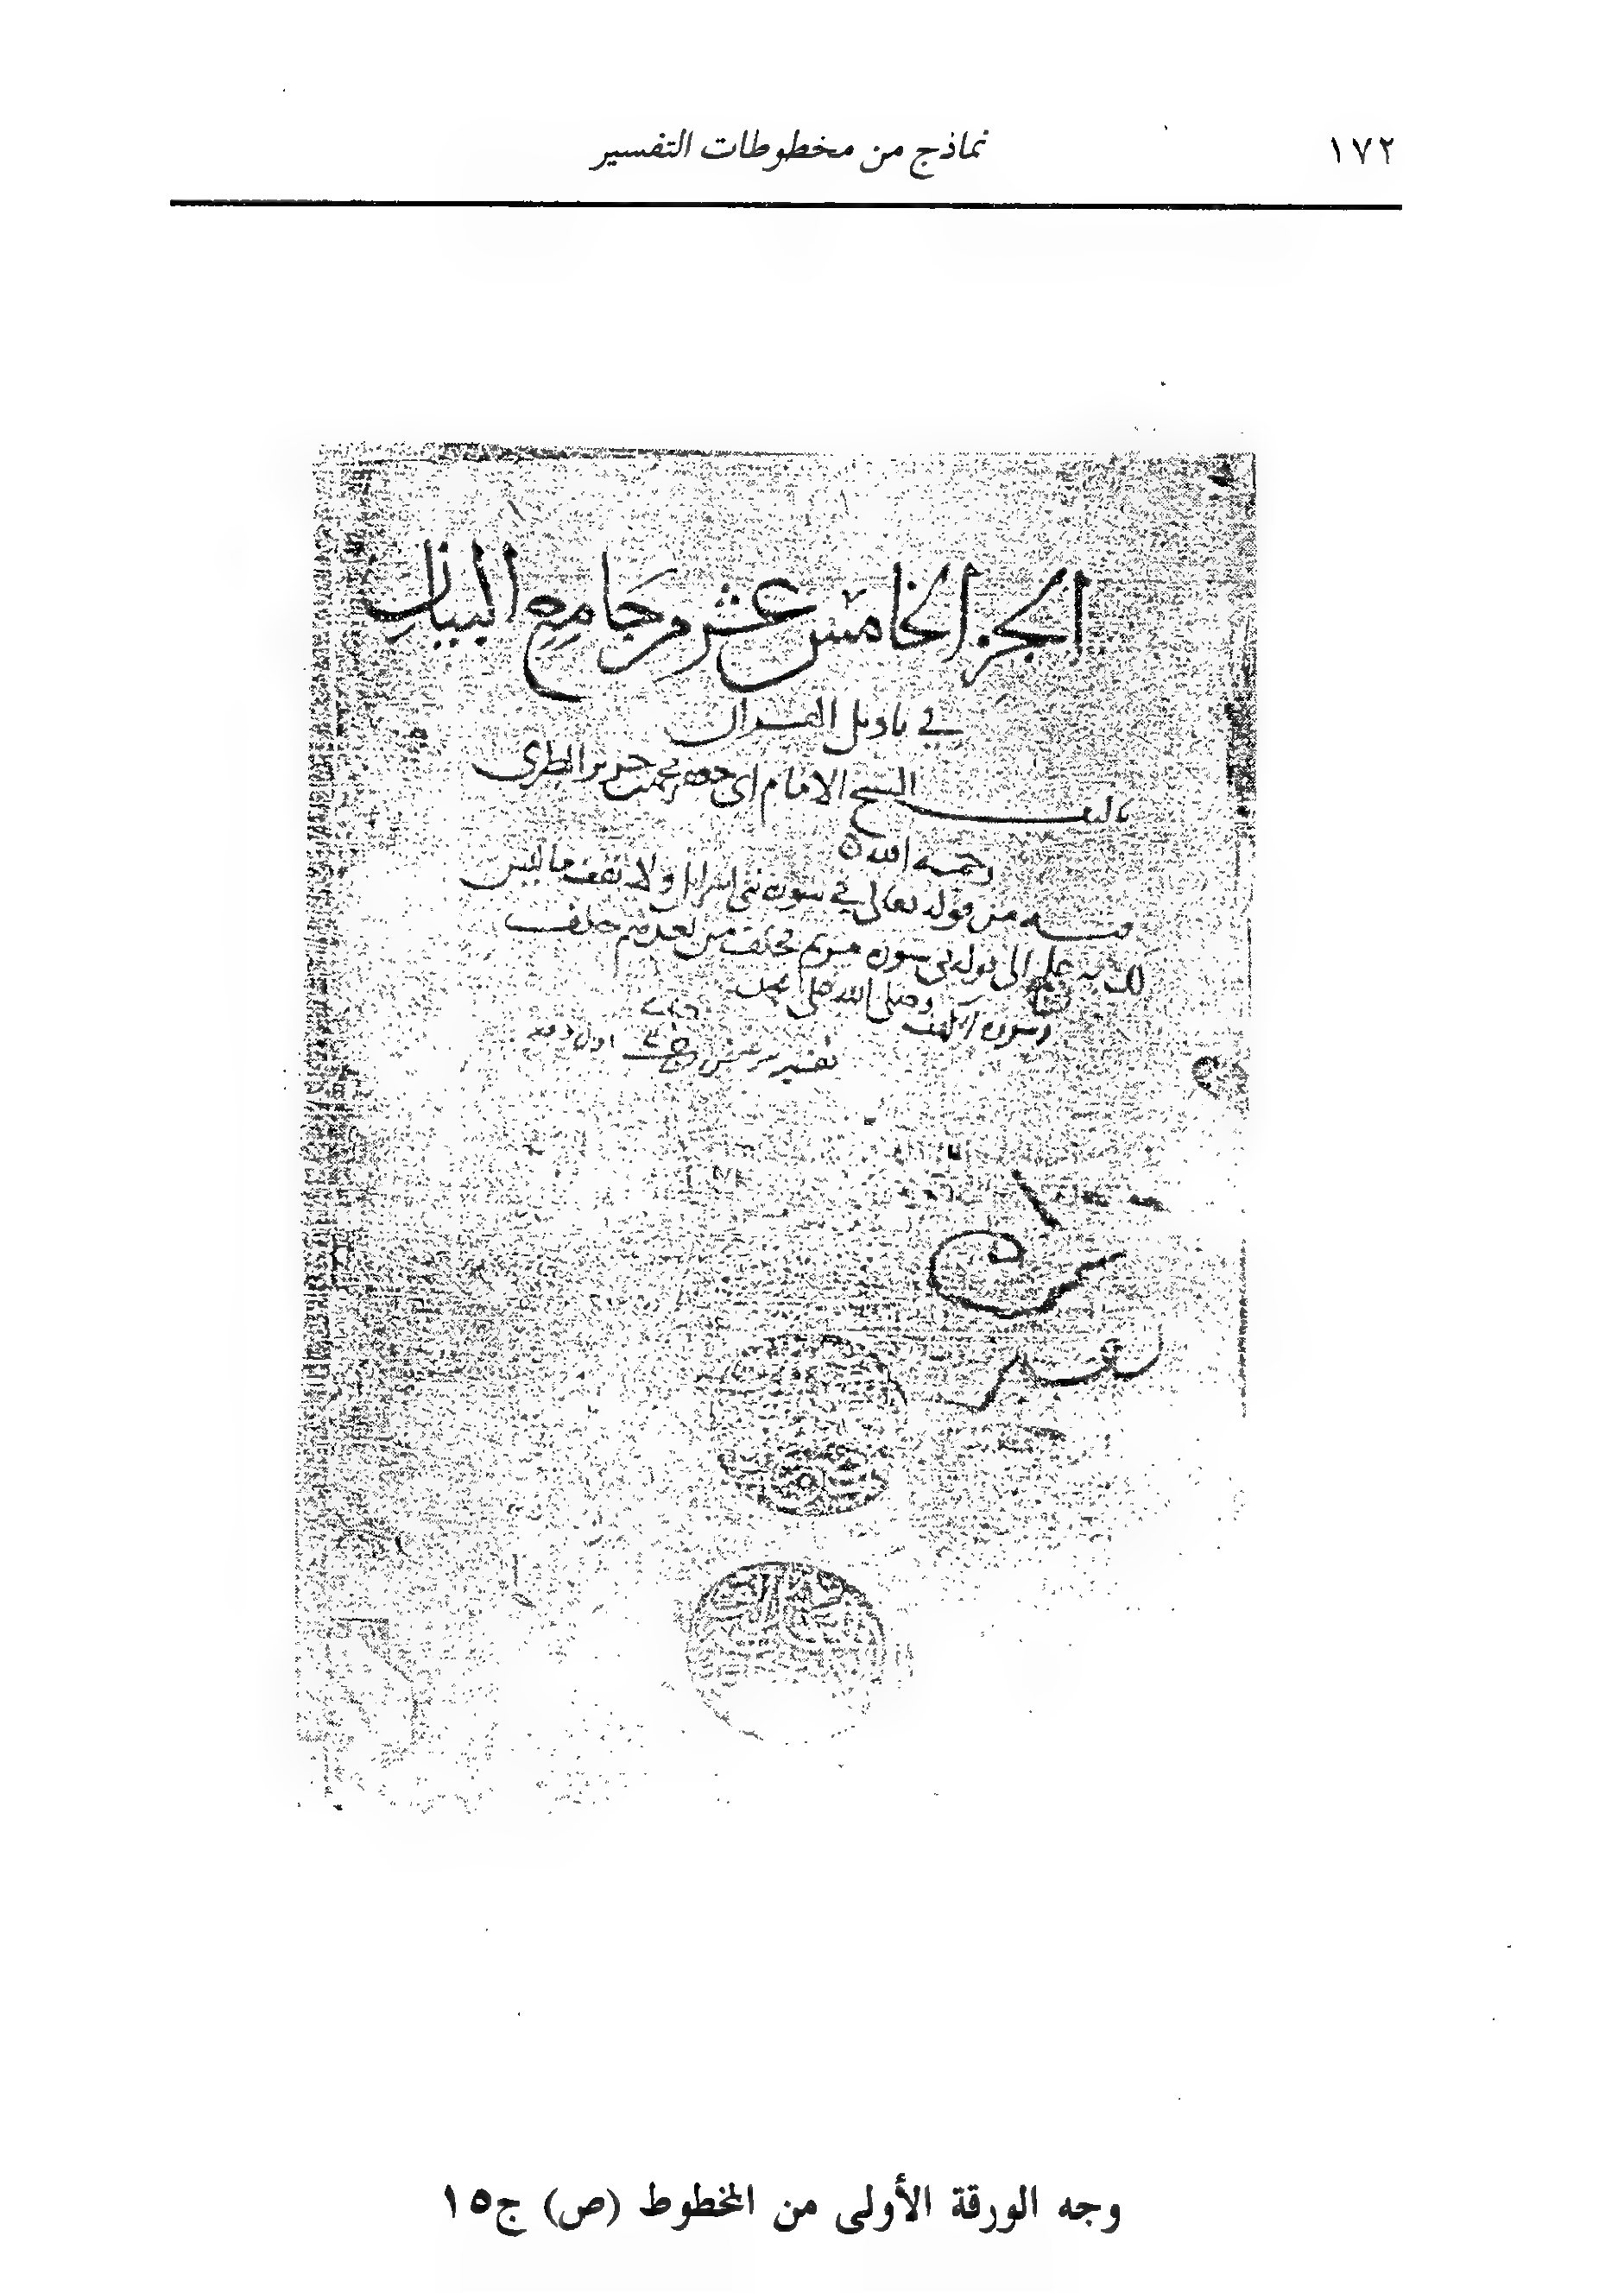 ١٧٢
نماذج من مخطوطات التفسير
الجزء الخامس عشر من جامع البيان
في تاويل القران
تاليف الشيخ الامام ابي جعفر محمد بن جرير الطبري
رحمه الله
فيه من قوله تعالى في سورة بني اسرايل ولا تقف ما ليس
لك به علم الى قوله في سورة مريم فخلف من بعدهم خلف
وسورة الكهف وصلى الله على محمد
تفسير
وجه الورقة الأولى من المخطوط (ص) ج١٥